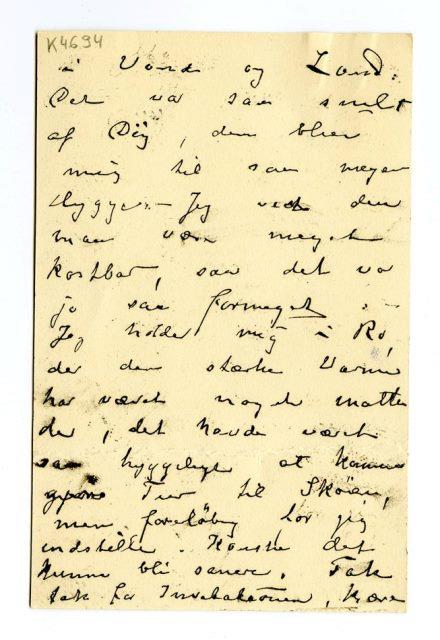 K4694
i Vand og Land.
Det var saa snilt
af Dig, den blev
mig til saa megen
Hygge. – Jeg ved den
maa være meget
kostbar, saa det va
jo saa formeget. –
Jeg holder mig i Ro,
der den stærke Varme
har været noget matten
de, det havde været
saa hyggeligt at kunne
gjøre Tur til Skoien,
men foreløbig tør jeg
indstille. Kanske det
kunne bli senere. Tak
tak for Invitationen, kære